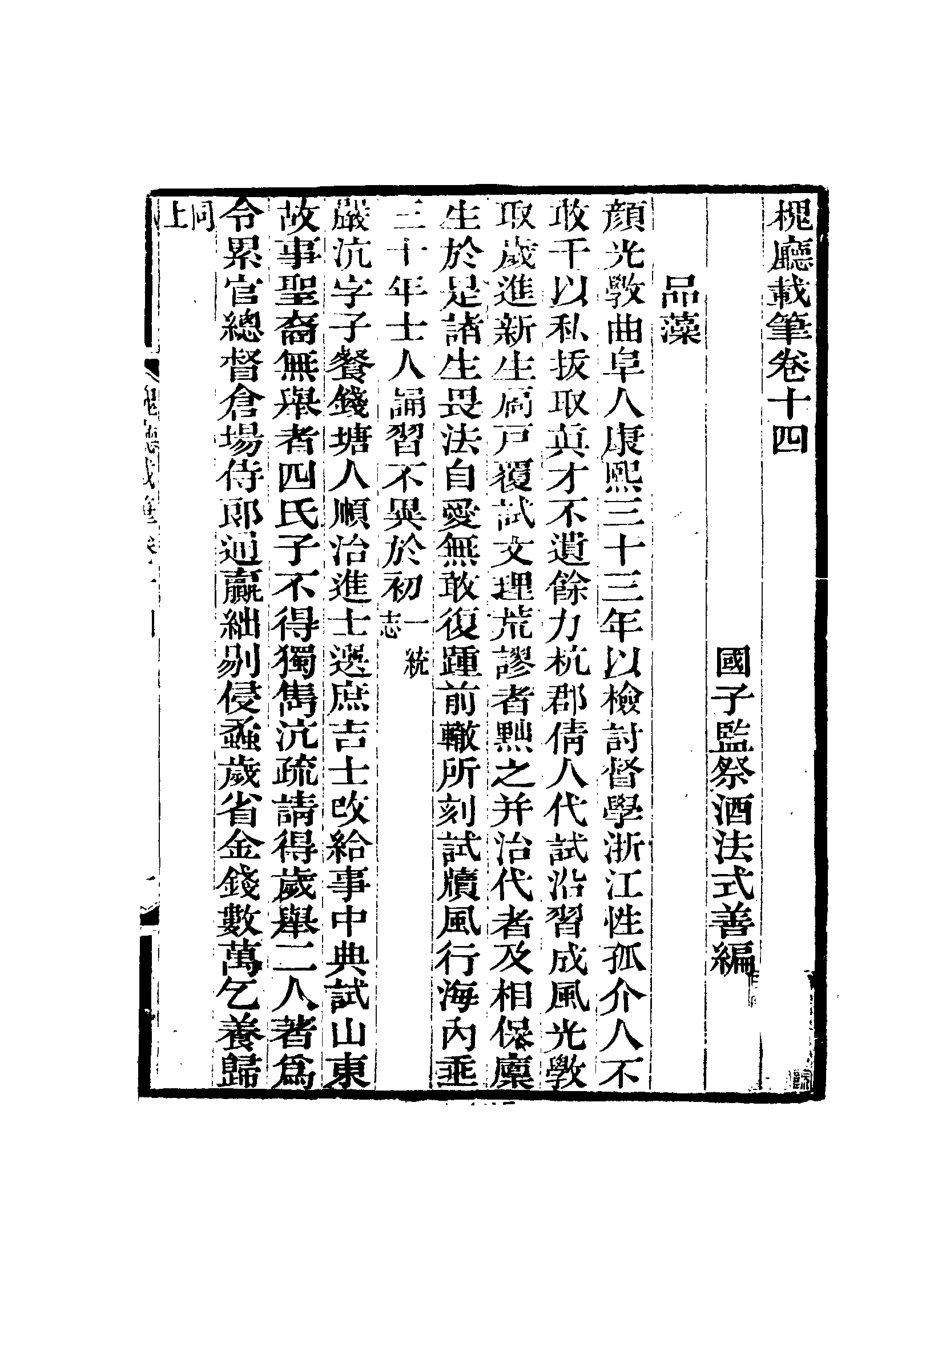 槐廳載筆卷十四
國子監祭酒法式善編
品藻
顏光斆曲阜人康熙三十三年以檢討督學浙江性孤介人不
敢干以私拔取真才不遺餘力杭郡倩人代試沿習成風光斆
取歲進新生扃戸覆試文理荒謬者黜之并治代者及相保廩
生於是諸生畏法自愛無敢復踵前轍所刻試牘風行海內垂
三十年士人誦習不異於初一統志
嚴沆字子餐錢塘人順治進士選庶吉士改給事中典試山東
故事聖裔無舉者四氏子不得獨雋沆疏請得歲舉二人著爲
令累官總督倉場侍郎通贏絀剔侵蝨歲省金錢數萬乞養歸
同上
槐廳載筆卷十四
一